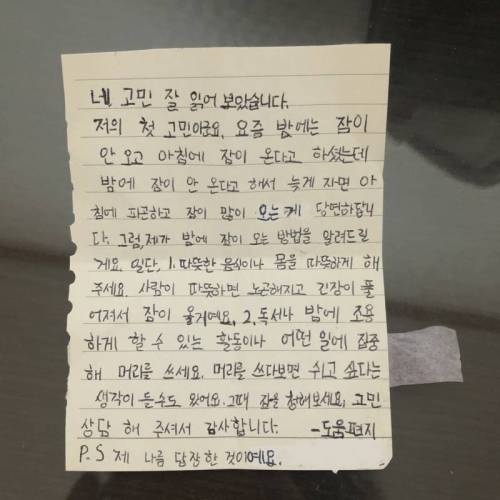 네 고민 잘 읽어 보았습니다.
저의 첫 고민이군요, 요즘 밤에는 잠이
안 오고 아침에 잠이 온다고 하셨는데
밤에 잠이 안 온다고 해서 늦게 자면 아
침에 피곤하고 잠이 많이 오는게 당연하답니
다. 그럼, 제가 밤에 잠이 오는 방법을 알려드릴
게요. 일단, 1. 따뜻한 음식이나 몸을 따뜻하게 해
주세요. 사람이 따뜻하면 노곤해지고 긴장이 풀
어져서 잠이 올거예요, 2. 독서나 밤에 조용
하게 할 수 있는 활동이나 어떤 일에 집중
해 머리를 쓰세요. 머리를 쓰다보면 쉬고 싶다는
생각이 들수도 있어요. 그때 잠을 청해보세요, 고민
상담 해 주셔서 감사합니다. -도움편지
P.S 제 나름 답장한 것이예요.